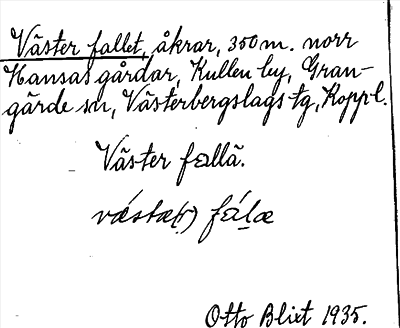 Väster fallet, åkrar, 350 m. norr
Hansas gårdar, Kullen by, Gran-
gärde sn, Västerbergslags tg, Koppl.
Väster fallä.
västæ(r) fálæ
Otto Blixt 1935.